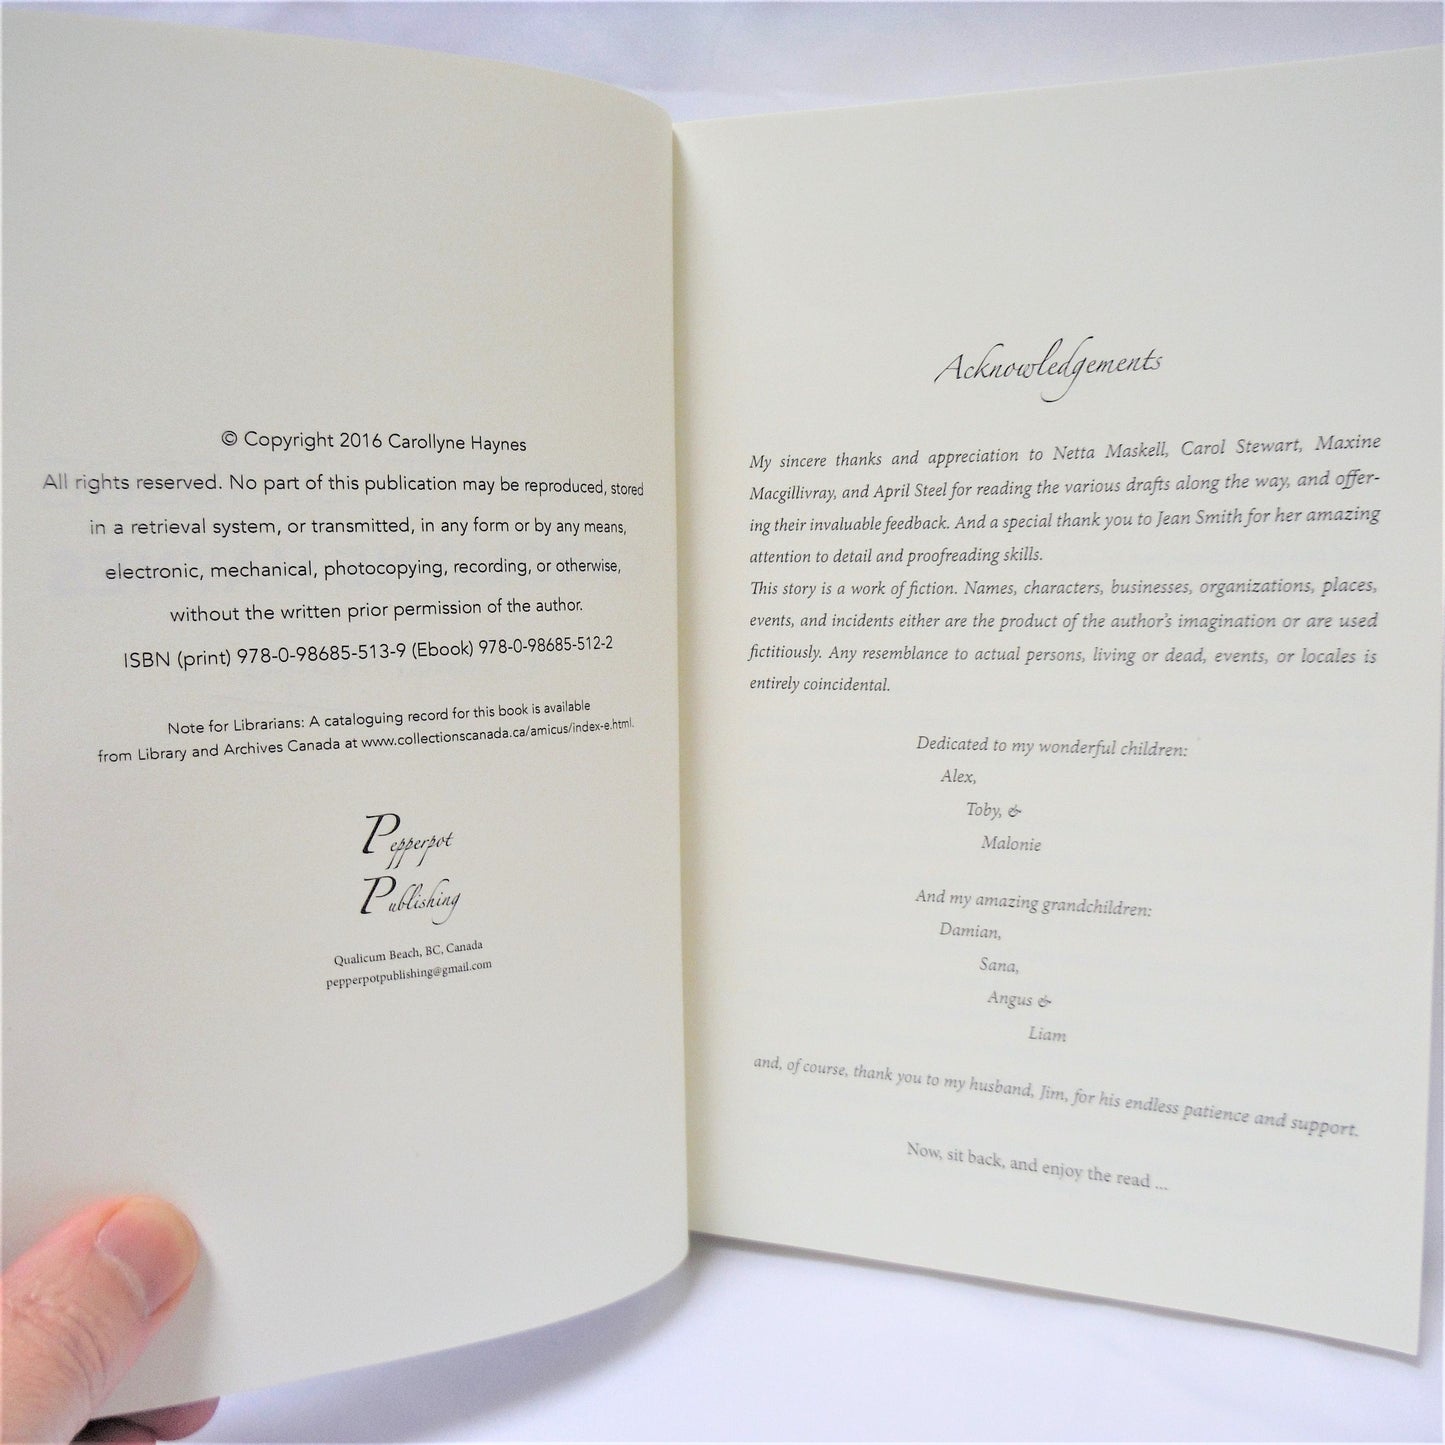 © Copyright 2016 Carollyne Haynes
All rights reserved. No part of this publication may be reproduced, stored
in a retrieval system, or transmitted, in any form or by any means,
electronic, mechanical, photocopying, recording, or otherwise,
without the written prior permission of the author.
ISBN (print) 978-0-98685-513-9 (Ebook) 978-0-98685-512-2
Note for Librarians: A cataloguing record for this book is available
from Library and Archives Canada at www.collectionscanada.ca/amicus/index-e.html.
Pepperpot
Publishing
Qualicum Beach, BC, Canada
pepperpotpublishing@gmail.com
Acknowledgements
My sincere thanks and appreciation to Netta Maskell, Carol Stewart, Maxine
Macgillivray, and April Steel for reading the various drafts along the way, and offer-
ing their invaluable feedback. And a special thank you to Jean Smith for her amazing
attention to detail and proofreading skills.
This story is a work of fiction. Names, characters, businesses, organizations, places,
events, and incidents either are the product of the author's imagination or are used
fictitiously. Any resemblance to actual persons, living or dead, events, or locales is
entirely coincidental.
Dedicated to my wonderful children:
Alex,
Toby, &
Malonie
And my amazing grandchildren:
Damian,
Sana,
Angus &
Liam
and, of course, thank you to my husband, Jim, for his endless patience and support.
Now, sit back, and enjoy the read ...